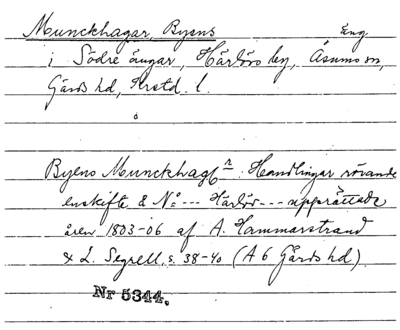 Munckhagar, Byens äng
i Södre ängar, Härlövs by, Åsums sn,
Gärds hd, Krstd. l.
Byens Munckhag[r] Handlingar rörande
enskifte å No --- Härlöv --- upprättade
åren 1803-06 af A. Hammarstrand
& L. Segrell, s. 38-40 (A 6 Gärds hd)
Nr 5344.